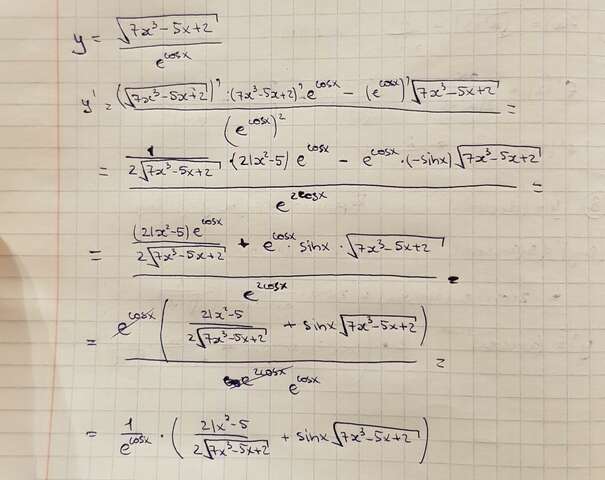 y = √(7x³-5x+2) / e^cosx
y' = ((√(7x³-5x+2))' · (7x³-5x+2)' · e^cosx - (e^cosx)' √(7x³-5x+2)) / (e^cosx)² =
= (1/(2√(7x³-5x+2)) · (21x²-5) e^cosx - e^cosx · (-sinx) √(7x³-5x+2)) / e^2cosx =
= ((21x²-5) e^cosx / (2√(7x³-5x+2)) + e^cosx · sinx · √(7x³-5x+2)) / e^2cosx =
= e^cosx ((21x²-5)/(2√(7x³-5x+2)) + sinx √(7x³-5x+2)) / e^2cosx e^cosx =
= 1/e^cosx · ((21x²-5)/(2√(7x³-5x+2)) + sinx √(7x³-5x+2))